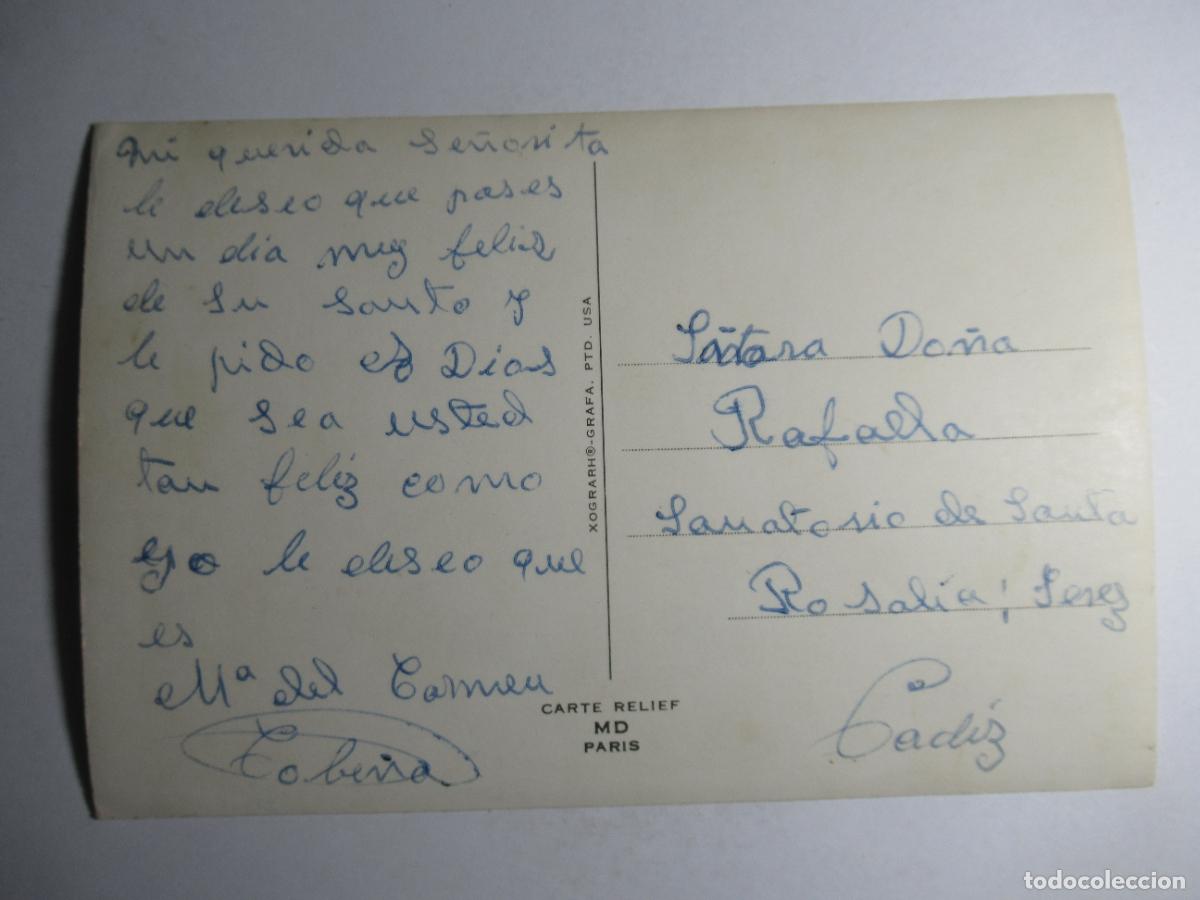 Mi querida Señorita
le deseo que pases
un dia muy feliz
de su santo y
le pido a Dios
que sea usted
tan feliz como
yo le deseo que
es
Mª del Carmen
XOGRARH®-GRAFA. PTD. USA
CARTE RELIEF
MD
PARIS
Doña
Rafaela
Sanatorio de Santa
Rosalía; Jerez
Cadiz
todocoleccion